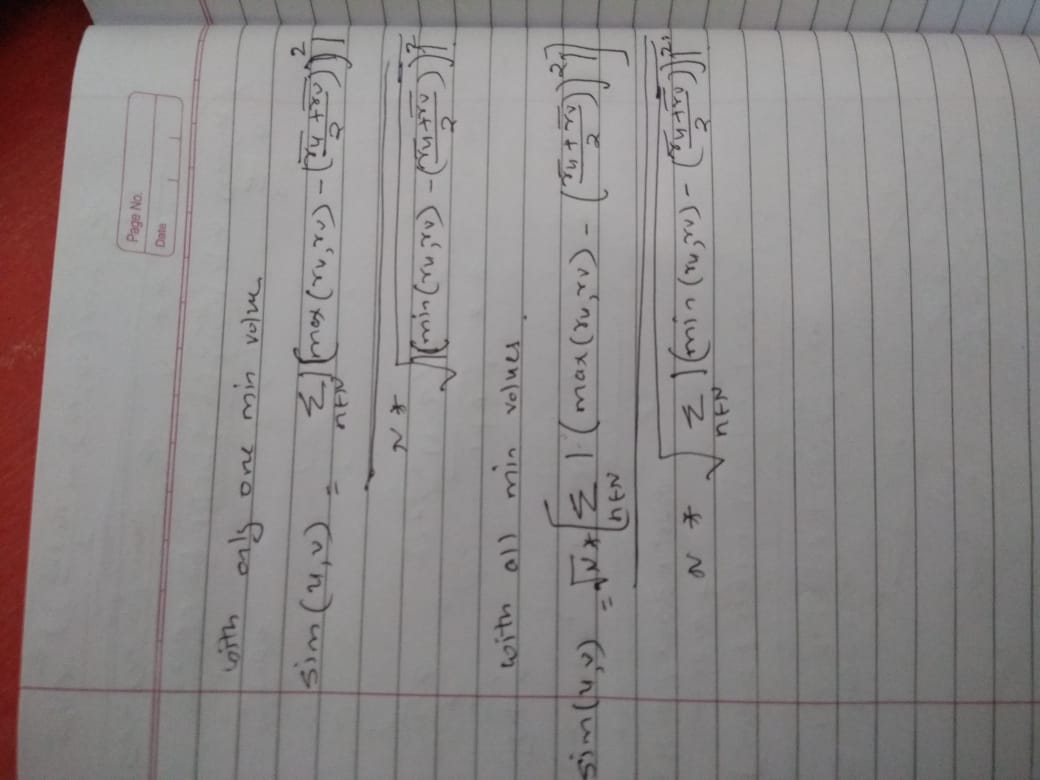 Page No.
Date
with only one min value
sim(u,v) = Σ_{n∈N} |(max(ru,rv) - (r̅u + r̅v)/2)|²
N * √|(min(ru,rv) - (r̅u + r̅v)/2)|²
with all min values.
sim(u,v) = √N * [Σ_{n∈N} |(max(ru,rv) - (r̅u + r̅v)/2)²|]
N * √Σ_{n∈N} |(min(ru,rv) - (r̅u + r̅v)/2)|²